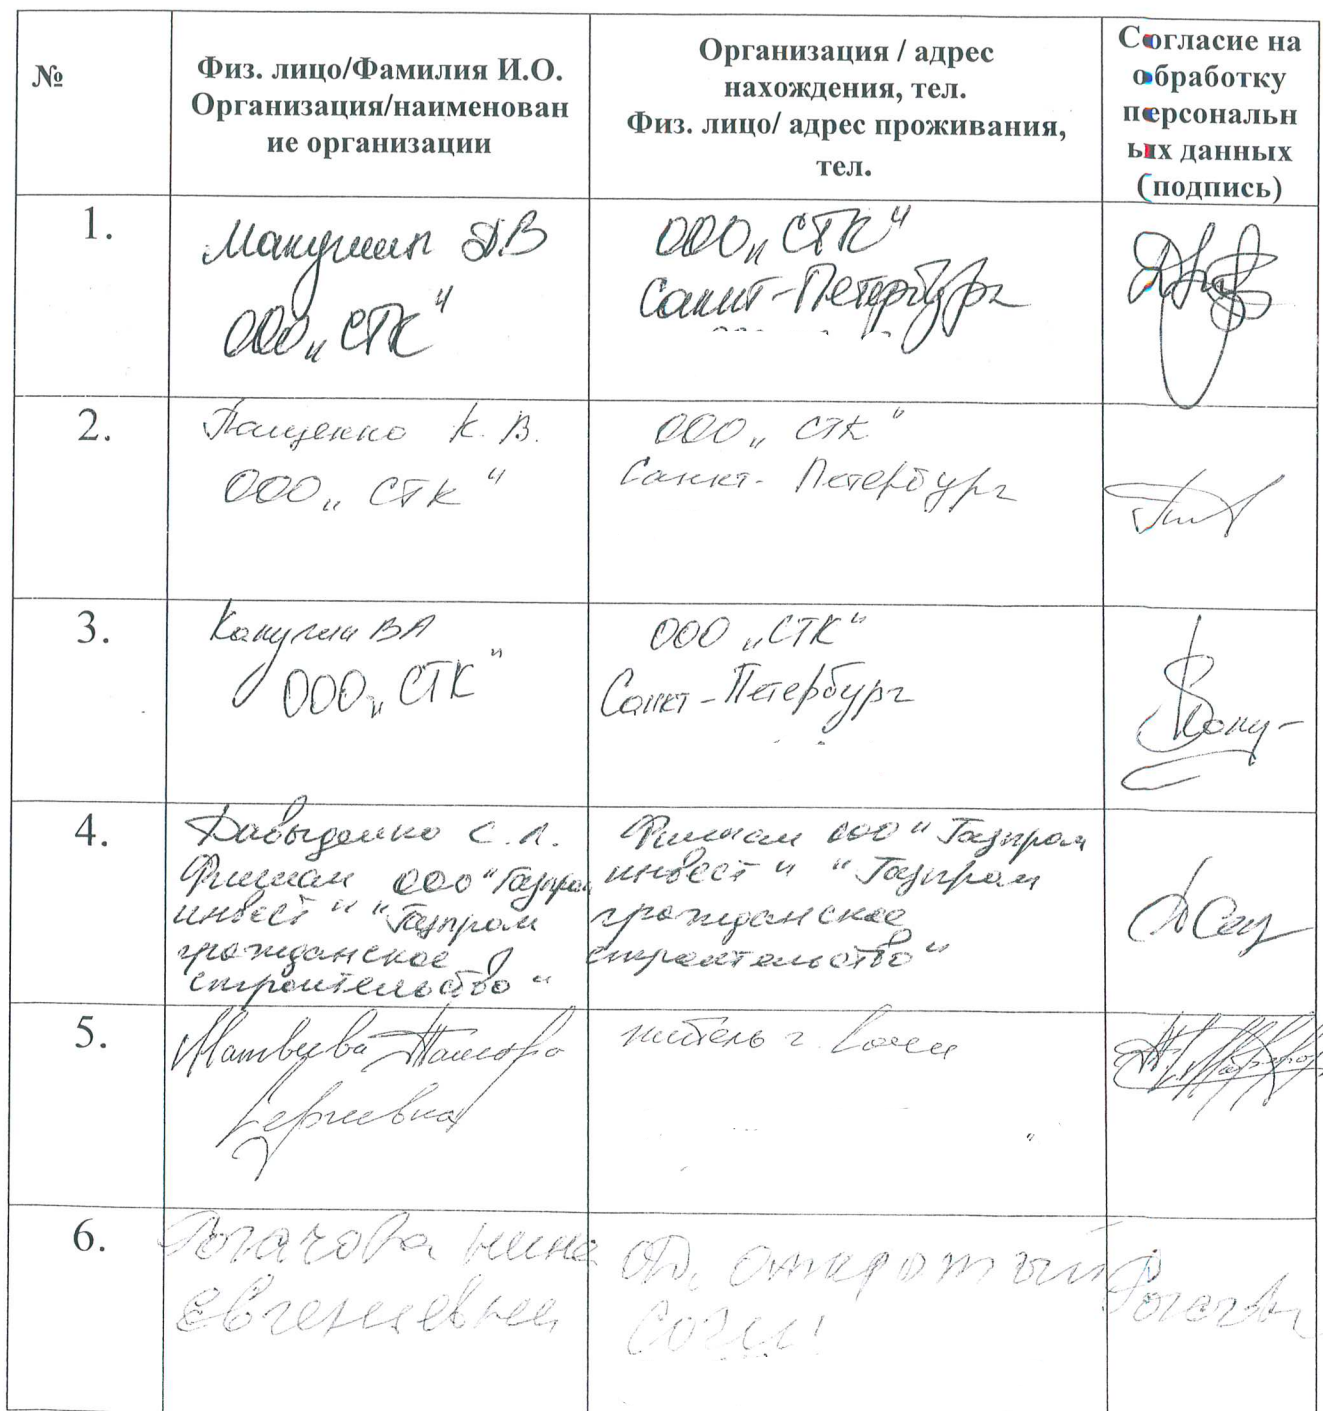 №
Физ. лицо/Фамилия И.О.
Организация/наименован
ие организации
Организация / адрес
нахождения, тел.
Физ. лицо/ адрес проживания,
тел.
Согласие на
обработку
персональн
ых данных
(подпись)
1.
Макушин ДВ
ООО „СТК"
ООО „СТК"
Санкт-Петербург
2.
Пащенко К. В.
ООО „СТК"
ООО „СТК"
Санкт-Петербург
3.
ВА
ООО „СТК"
ООО „СТК"
Санкт-Петербург
4.
Давыденко С.Л.
Филиал ООО "Газпром
инвест" "Газпром
гражданское
строительство"
Филиал ООО "Газпром
инвест" "Газпром
гражданское
строительство"
5.
Матвеева Тамара
Сергеевна
житель г. Сочи
6.
Рогачова Нина
Евгениевна
ОД, открытый
Сочи!